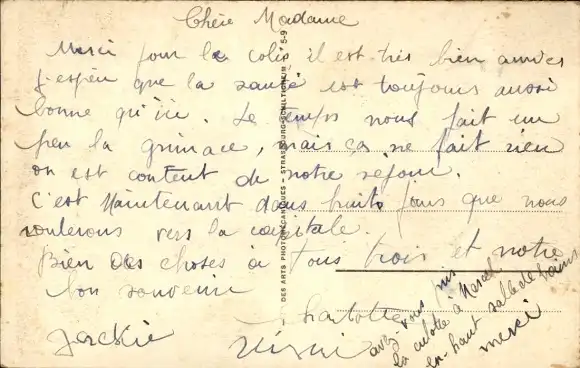 Chère Madame
Merci pour le colis il est très bien arrivés
J'espère que la santé est toujours aussi
bonne qu'ici. Le temps nous fait un
peu la grimace, mais ça ne fait rien
on est content de notre séjour.
C'est Maintenant dans huits jours que nous
roulerons vers la capitale.
Bien des choses à tous trois et notre
bon souvenir
Charlotte
Jackie
avez vous mis
la culotte à
en haut salle de bains
merci
DES ARTS PHOTOMÉCANIQUES - STRASBOURG-SCHILTIGHEIM